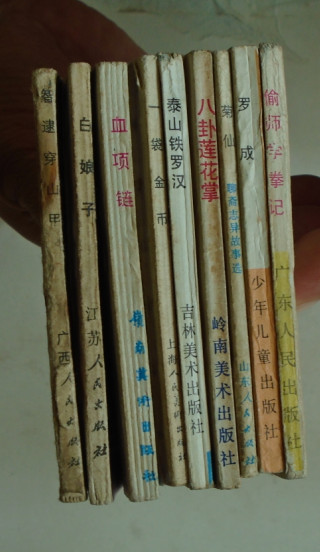 智逮穿山甲
广西人民出版社
白娘子
江苏人民出版社
血项链
岭南美术出版社
一袋金币
上海人民美术出版社
泰山铁罗汉
吉林美术出版社
八卦莲花掌
岭南美术出版社
菊仙
聊斋志异故事选
山东人民出版社
罗成
少年儿童出版社
偷师学拳记
广东人民出版社